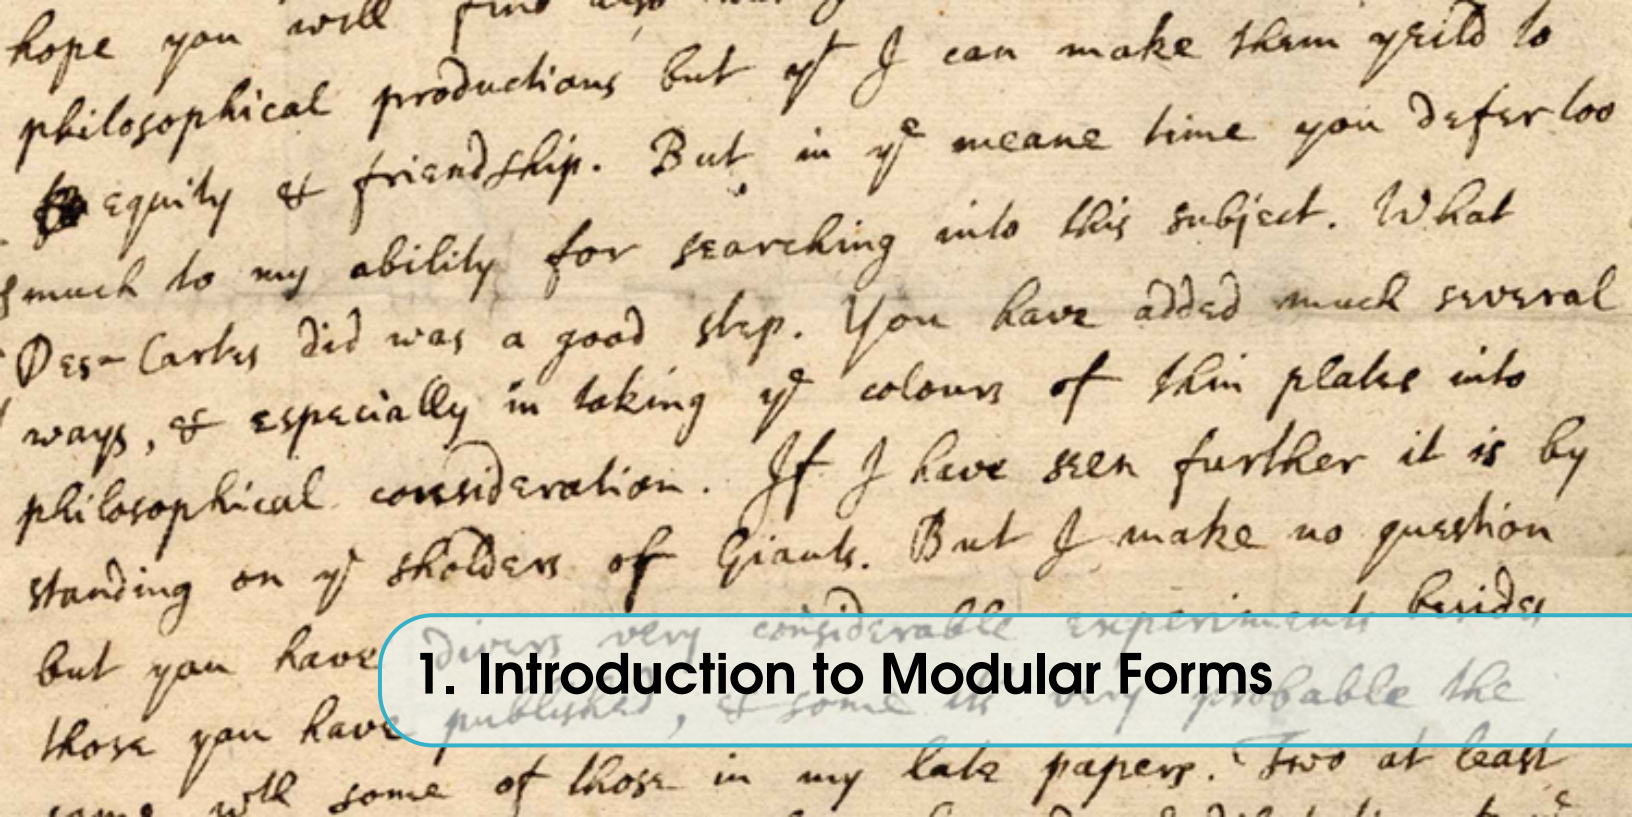 hope you will find also that
philosophical productions but yt I can make them yeild to
equity & friendship. But in ye meane time you defer too
much to my ability for searching into this subject. What
Des-Cartes did was a good step. You have added much several
ways, & especially in taking ye colours of thin plates into
philosophical consideration. If I have seen further it is by
standing on ye sholders of Giants. But I make no question
but you have divers very considerable experiments besides
those you have published, & some its very probable the
same wth some of those in my late papers. Two at least
1. Introduction to Modular Forms